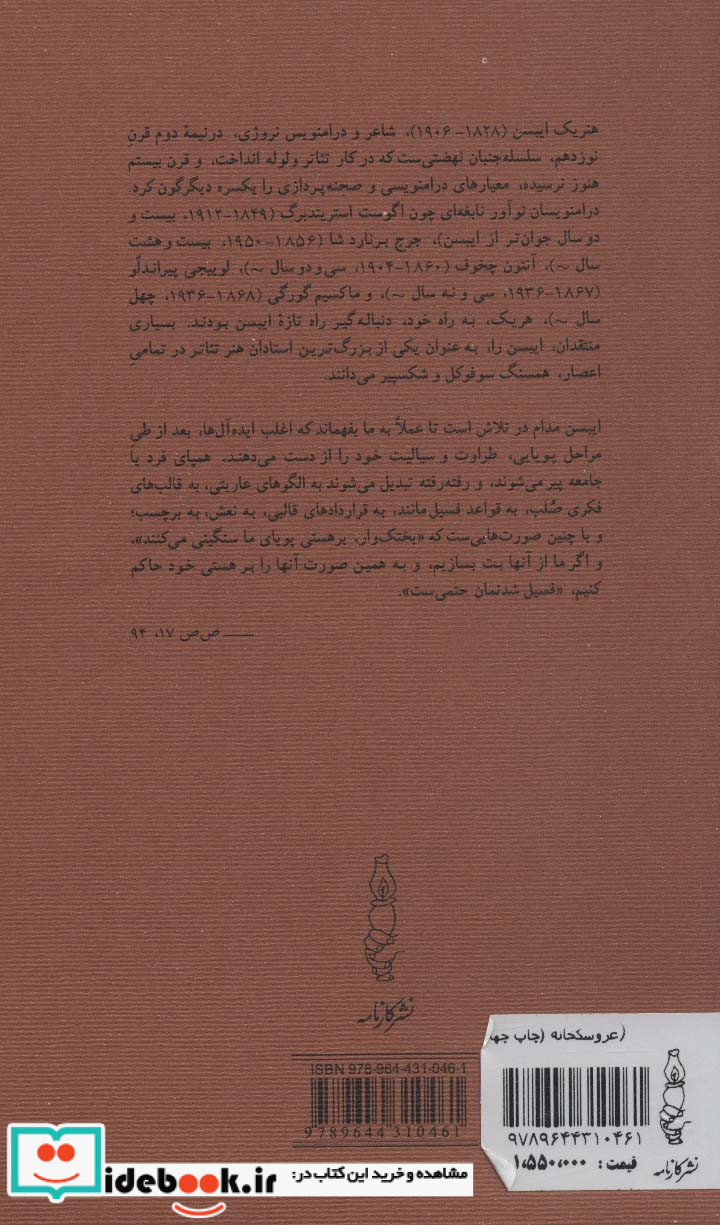 هنریک ایبسن (۱۸۲۸-۱۹۰۶)، شاعر و درامنویس نروژی، درنیمهٔ دوم قرنِ
نوزدهم، سلسله‌جنبان نهضتی‌ست که در کار تئاتر ولوله انداخت، و قرن بیستم
هنوز نرسیده، معیارهای درامنویسی و صحنه‌پردازی را یکسره دیگرگون کرد.
درامنویسان نوآور نابغه‌ای چون اگوست استریندبرگ (۱۸۴۹-۱۹۱۲، بیست و
دو سال جوان‌تر از ایبسن)، جرج برنارد شا (۱۸۵۶-۱۹۵۰، بیست و هشت
سال ~)، آنتون چخوف (۱۸۶۰-۱۹۰۴، سی و دو سال ~)، لوییجی پیراندلّو
(۱۸۶۷-۱۹۳۶، سی و نه سال ~)، و ماکسیم گورگی (۱۸۶۸-۱۹۳۶، چهل
سال ~)، هریک، به راه خود، دنباله‌گیر راه تازهٔ ایبسن بودند. بسیاری
منتقدان، ایبسن را، به عنوان یکی از بزرگ‌ترین استادان هنر تئاتر در تمامیِ
اعصار، همسنگ سوفوکل و شکسپیر می‌دانند.
ایبسن مدام در تلاش است تا عملاً به ما بفهماند که اغلب ایده‌آل‌ها، بعد از طیِ
مراحل پویایی، طراوت و سیالیت خود را از دست می‌دهند، همپای فرد یا
جامعه پیر می‌شوند، و رفته‌رفته تبدیل می‌شوند به الگوهای عاریتی، به قالب‌های
فکری صُلب، به قواعد فسیل‌مانند، به قراردادهای قالبی، به نعش، به برچسب؛
و با چنین صورت‌هایی‌ست که «بختک‌وار، برهستی پویای ما سنگینی می‌کنند»،
و اگر ما از آنها بت بسازیم، و به همین صورت آنها را بر هستی خود حاکم
کنیم، «فسیل شدنمان حتمی‌ست».
ــــــ ص‌ص ۱۷، ۹۴
نشر کارنامه
ISBN 978-964-431-046-1
9 789644 310461
(عروسکخانه (چاپ چها
۹۷۸۹۶۴۴۳۱۰۴۶۱
قیمت : ۱,۵۵۰,۰۰۰
نشر کارنامه
idebook.ir
مشاهده و خرید این کتاب در: